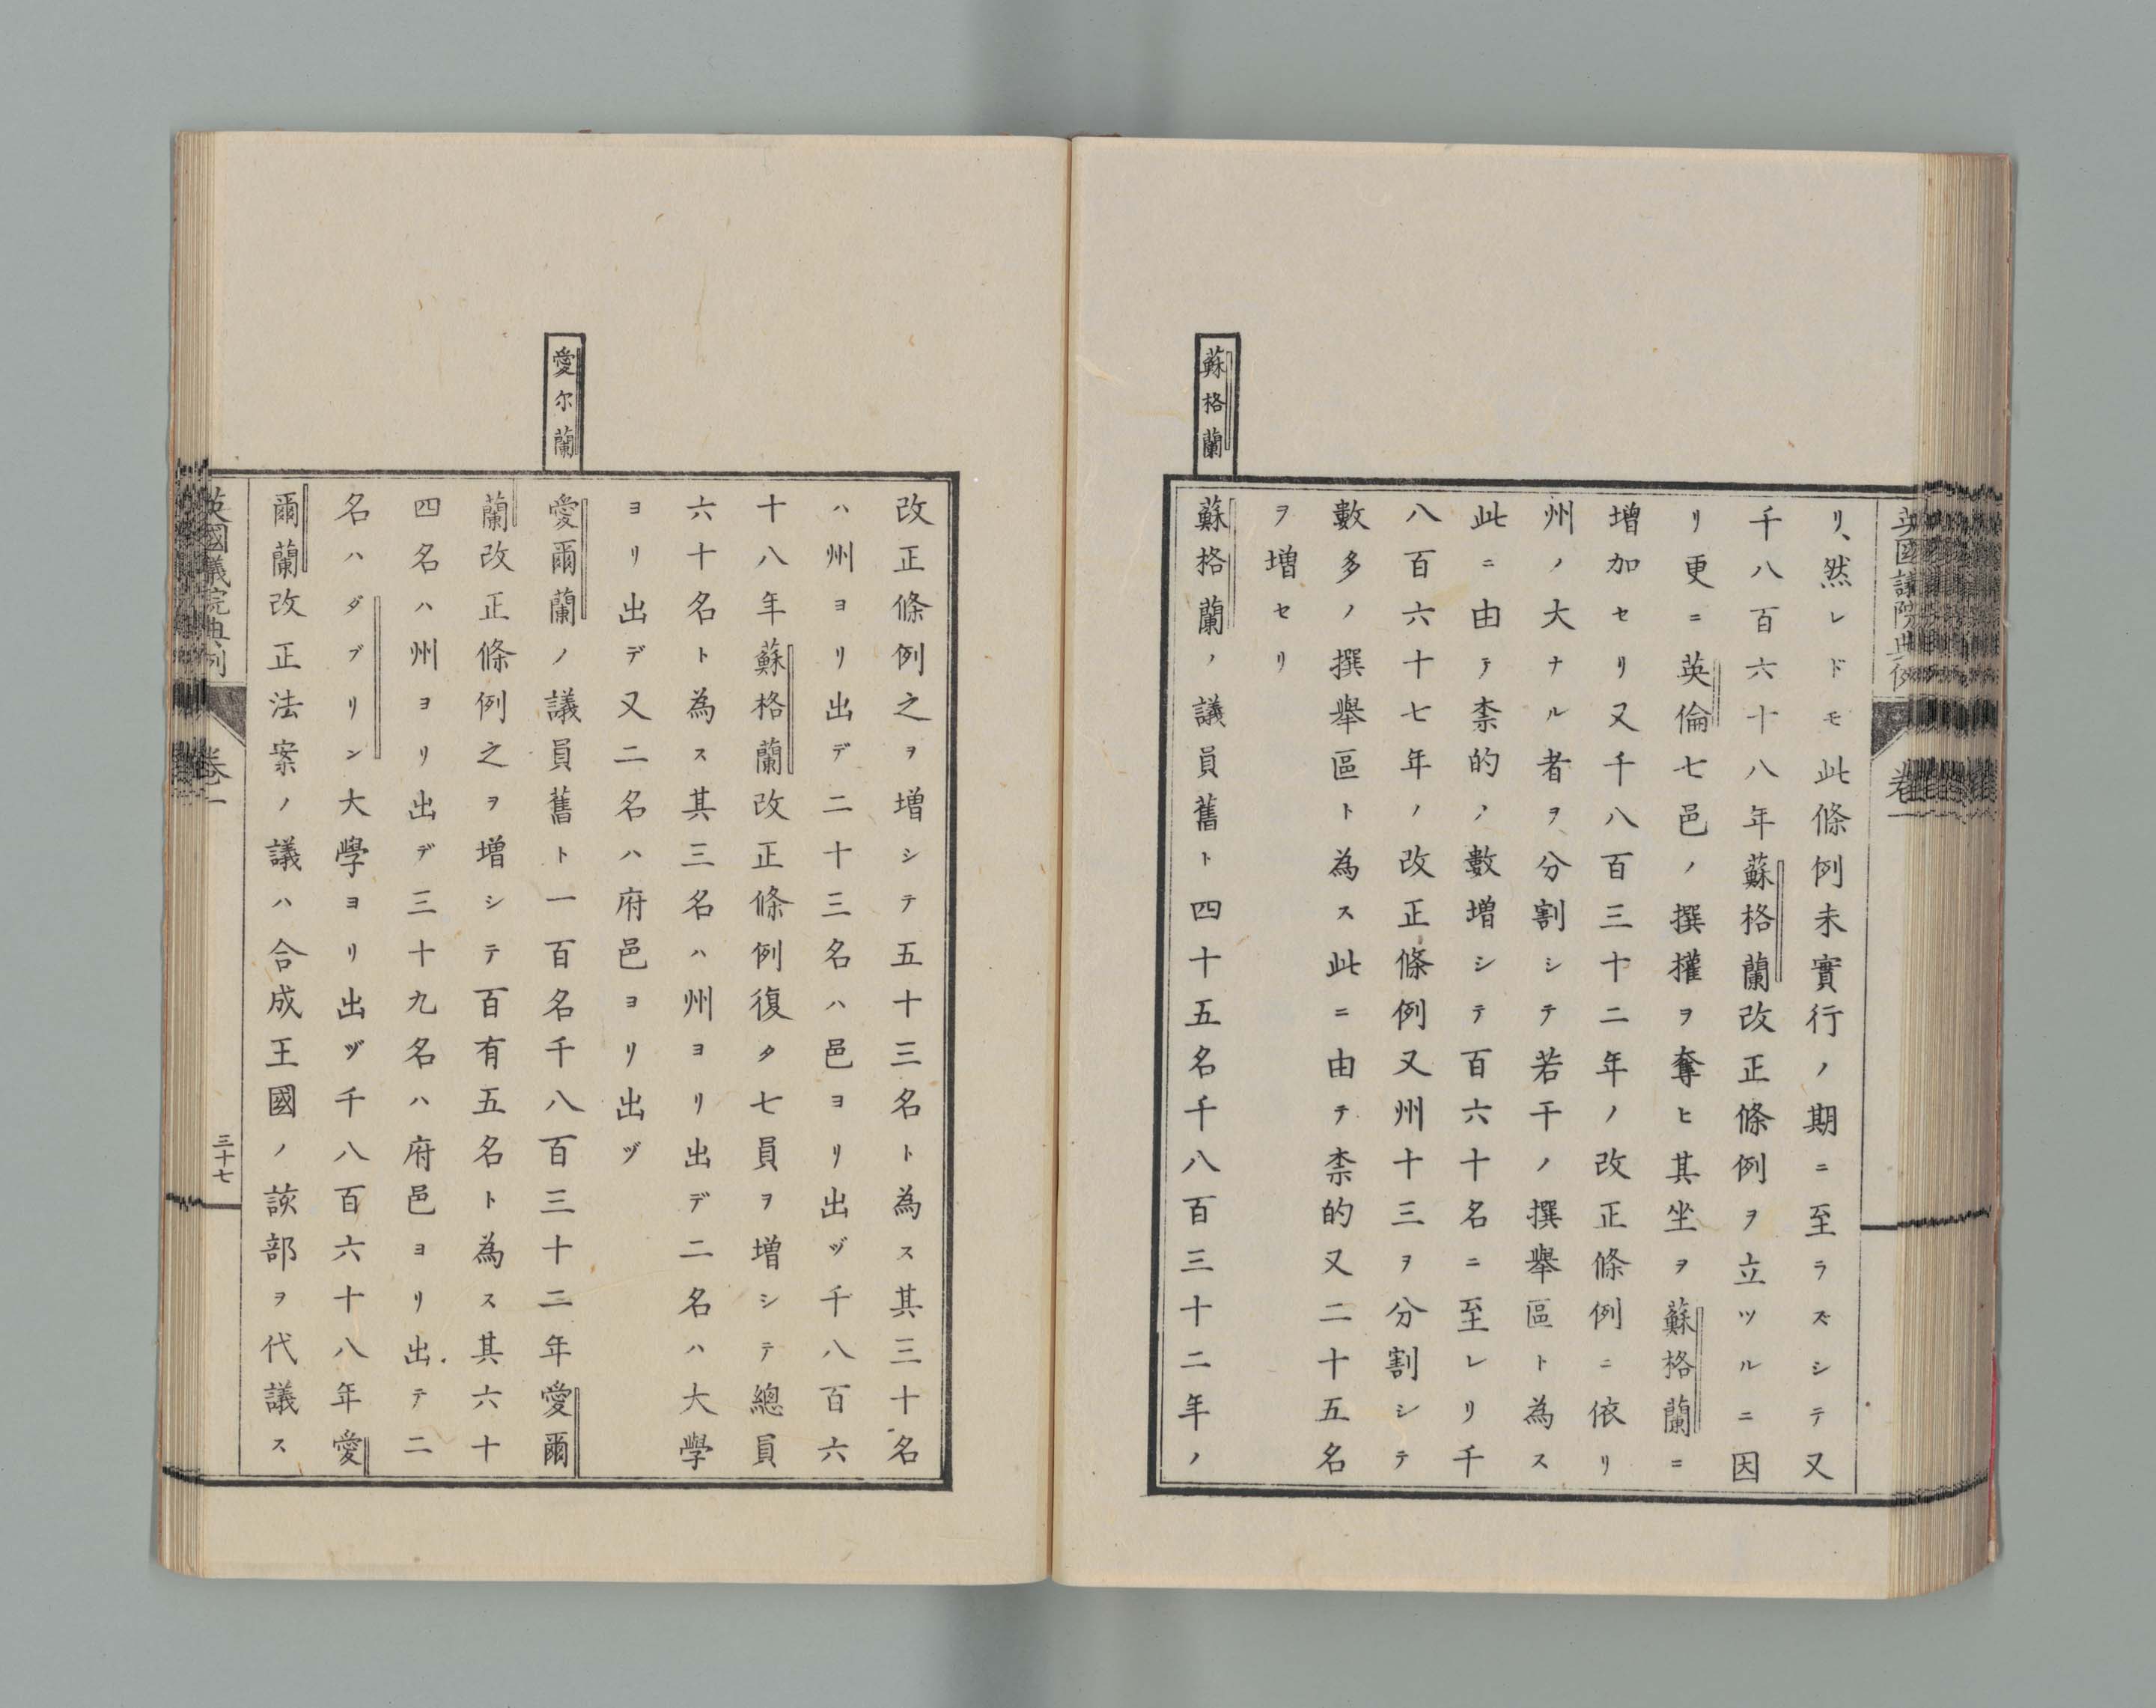 英國議院典例
卷一
リ、然レドモ此條例未實行ノ期ニ至ラズシテ又
千八百六十八年蘇格蘭改正條例ヲ立ツルニ因
リ更ニ英倫七邑ノ撰權ヲ奪ヒ其坐ヲ蘇格蘭ニ
増加セリ又千八百三十二年ノ改正條例ニ依リ
州ノ大ナル者ヲ分割シテ若干ノ撰舉區ト為ス
此ニ由テ柰的ノ數増シテ百六十名ニ至レリ千
八百六十七年ノ改正條例又州十三ヲ分割シテ
數多ノ撰舉區ト為ス此ニ由テ柰的又二十五名
ヲ増セリ
蘇格蘭
蘇格蘭ノ議員舊ト四十五名千八百三十二年ノ
改正條例之ヲ増シテ五十三名ト為ス其三十名
ハ州ヨリ出デ二十三名ハ邑ヨリ出ヅ千八百六
十八年蘇格蘭改正條例復タ七員ヲ増シテ總員
六十名ト為ス其三名ハ州ヨリ出デ二名ハ大學
ヨリ出デ又二名ハ府邑ヨリ出ヅ
愛尔蘭
愛爾蘭ノ議員舊ト一百名千八百三十二年愛爾
蘭改正條例之ヲ増シテ百有五名ト為ス其六十
四名ハ州ヨリ出デ三十九名ハ府邑ヨリ出テ二
名ハダブリン大學ヨリ出ヅ千八百六十八年愛
爾蘭改正法案ノ議ハ合成王國ノ該部ヲ代議ス
英國議院典例
卷一
三十七